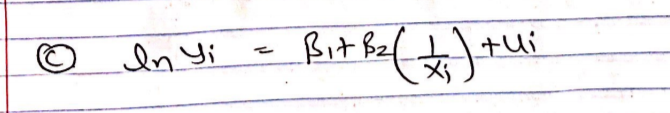 © ln yi = β1 + β2 (1/Xi) + ui